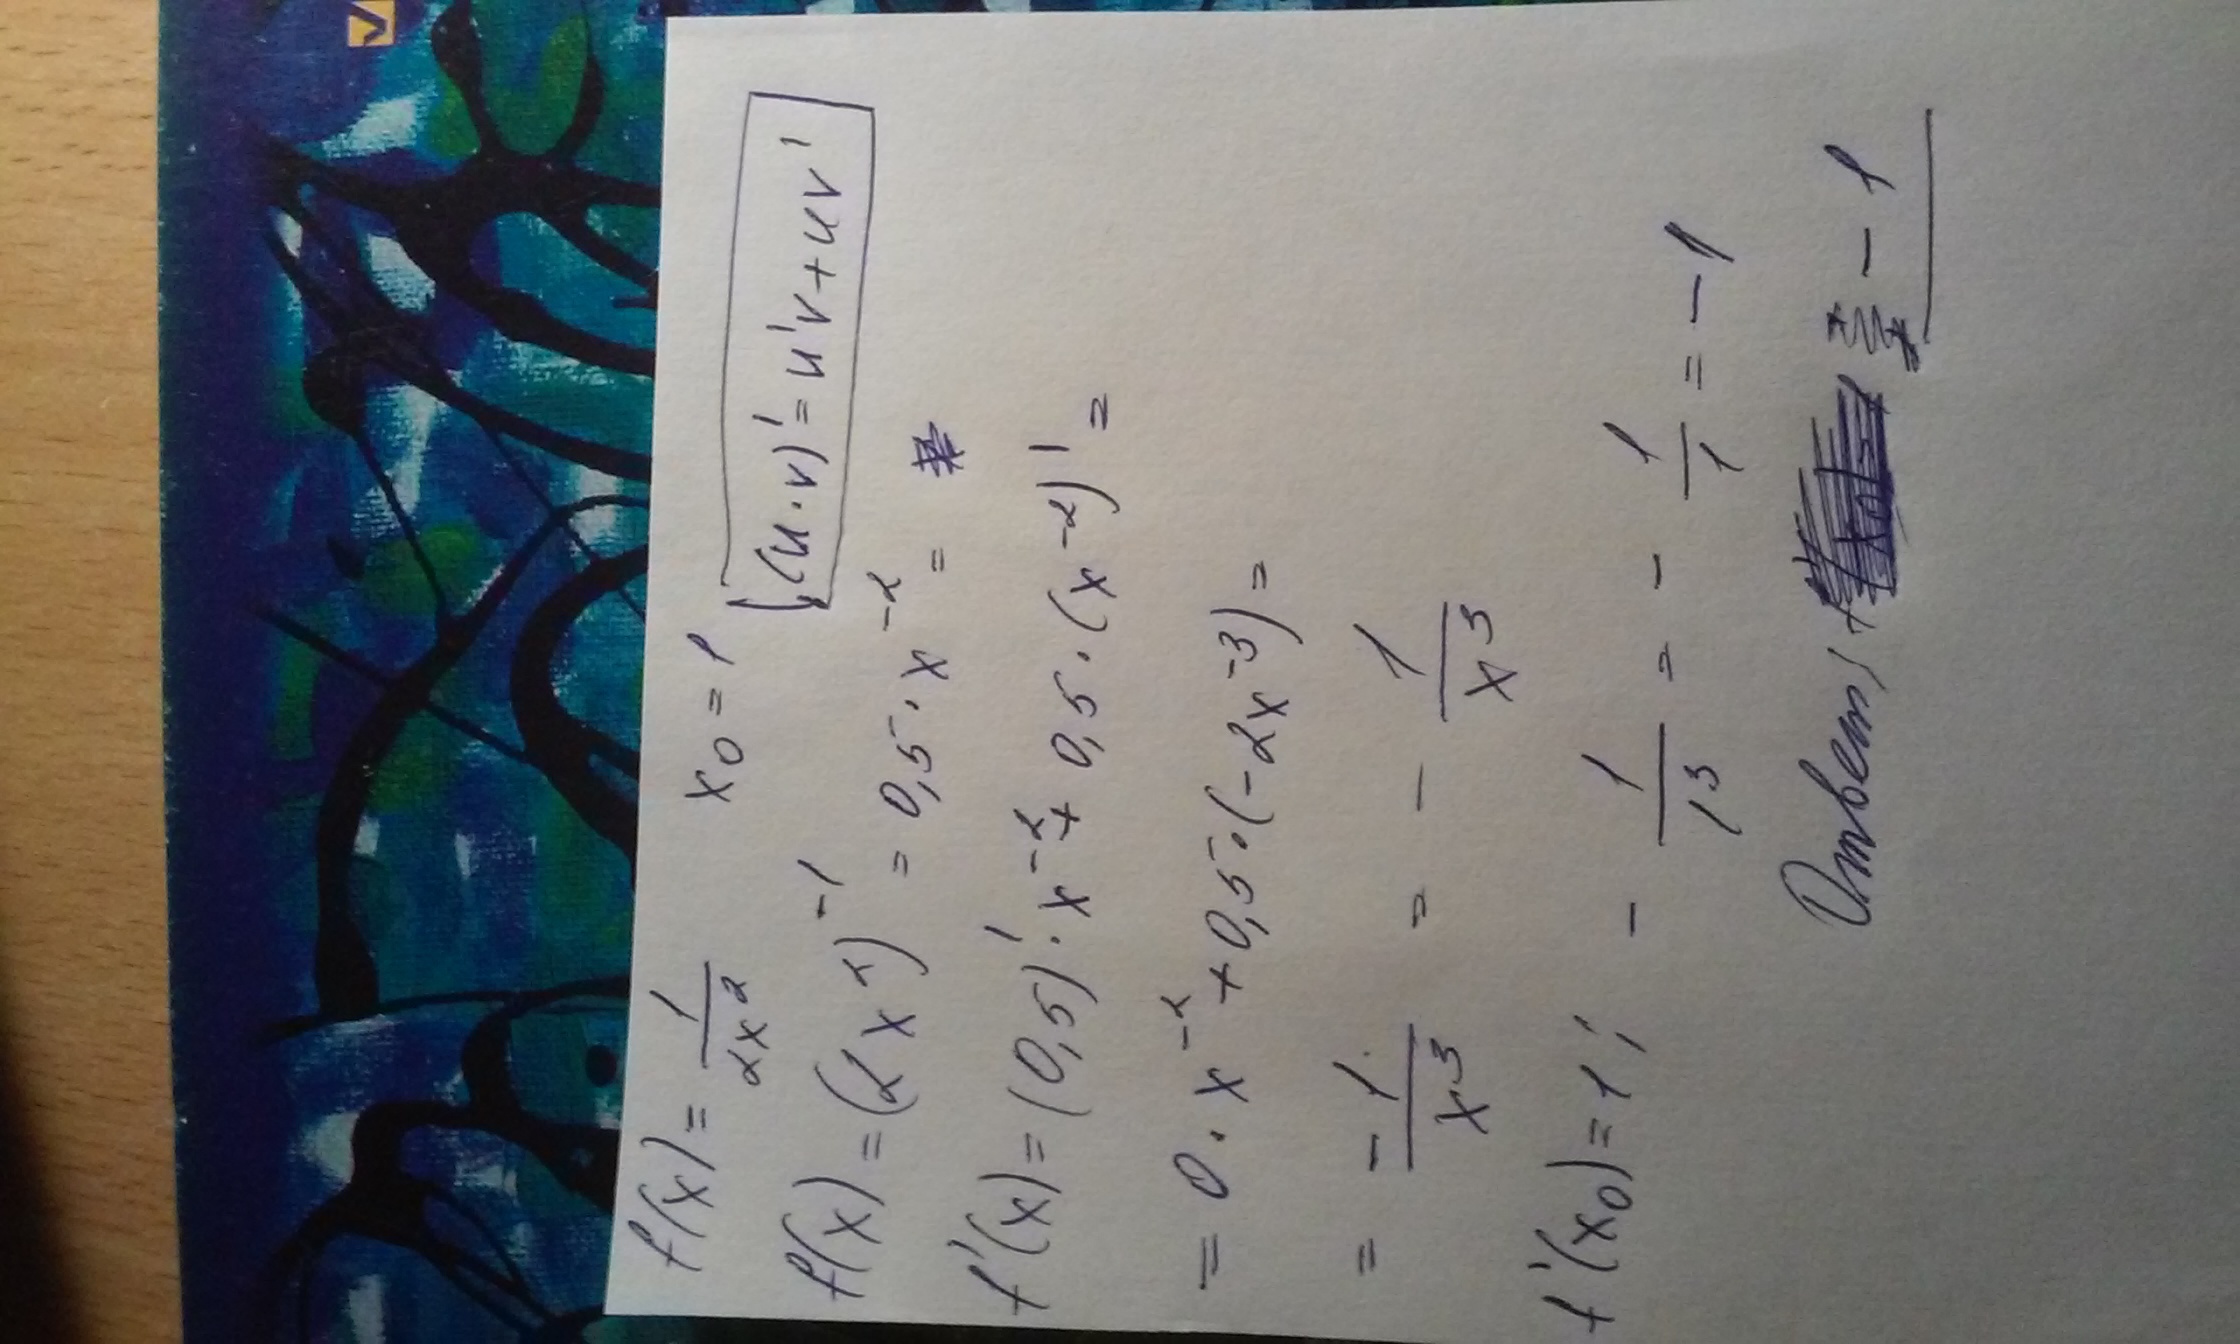 f(x) = 1/2x² x₀ = 1
(u·v)' = u'v + uv'
f(x) = (2x²)⁻¹ = 0,5·x⁻² =
f'(x) = (0,5)'·x⁻² + 0,5·(x⁻²)' =
= 0·x⁻² + 0,5·(-2x⁻³) =
= -1/x³ = - 1/x³
f'(x₀) = 1; - 1/1³ = - 1/1 = -1
Ответ - 1